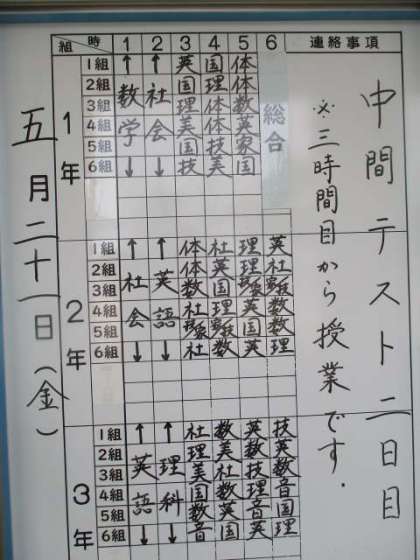 組 時 1 2 3 4 5 6 連絡事項
1年
1組 ↑ ↑ 英 国 体
2組 国 理 体
3組 数 社 理 体 数 総合
4組 学 会 美 体 英
5組 国 技 家
6組 ↓ ↓ 技 美 国
2年
1組 ↑ ↑ 体 社 理 英
2組 体 英 理 社
3組 社 英 数 国
4組 会 語 社 理 英 数
5組 国 数
6組 ↓ ↓ 社 数 英 理
3年
1組 ↑ ↑ 社 数 英 技
2組 理 美 数 英
3組 英 理 美 社 技 数
4組 語 科 国 数 理 音
5組 数 英 音 国
6組 ↓ ↓ 音 国 英 理
中間テスト二日目
※三時間目から授業です.
五月二十一日(金)